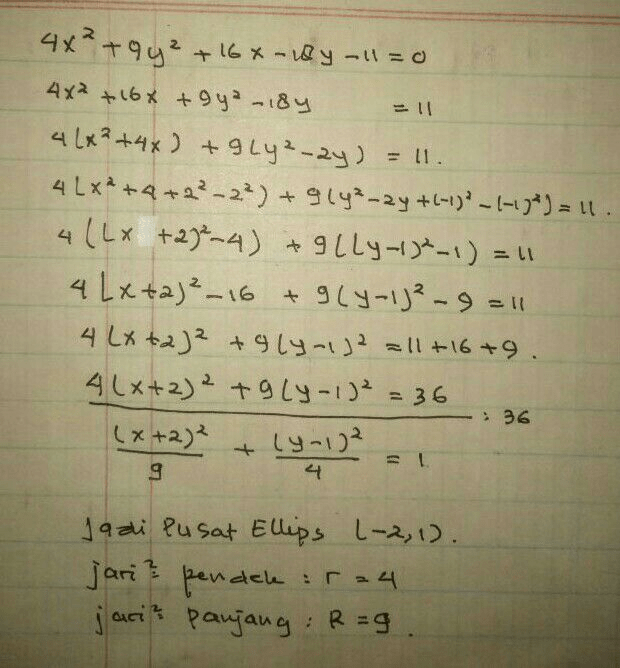 4x² + 9y² + 16x - 18y - 11 = 0
4x² + 16x + 9y² - 18y = 11
4(x² + 4x) + 9(y² - 2y) = 11.
4(x² + 4 + 2² - 2²) + 9(y² - 2y + (-1)² - (-1)²) = 11.
4((x + 2)² - 4) + 9((y - 1)² - 1) = 11
4(x + 2)² - 16 + 9(y - 1)² - 9 = 11
4(x + 2)² + 9(y - 1)² = 11 + 16 + 9.
4(x + 2)² + 9(y - 1)² = 36 : 36
(x + 2)²/9 + (y - 1)²/4 = 1
Jadi Pusat Ellips (-2, 1).
jari²: pendek : r = 4
jari²: Panjang : R = 9.